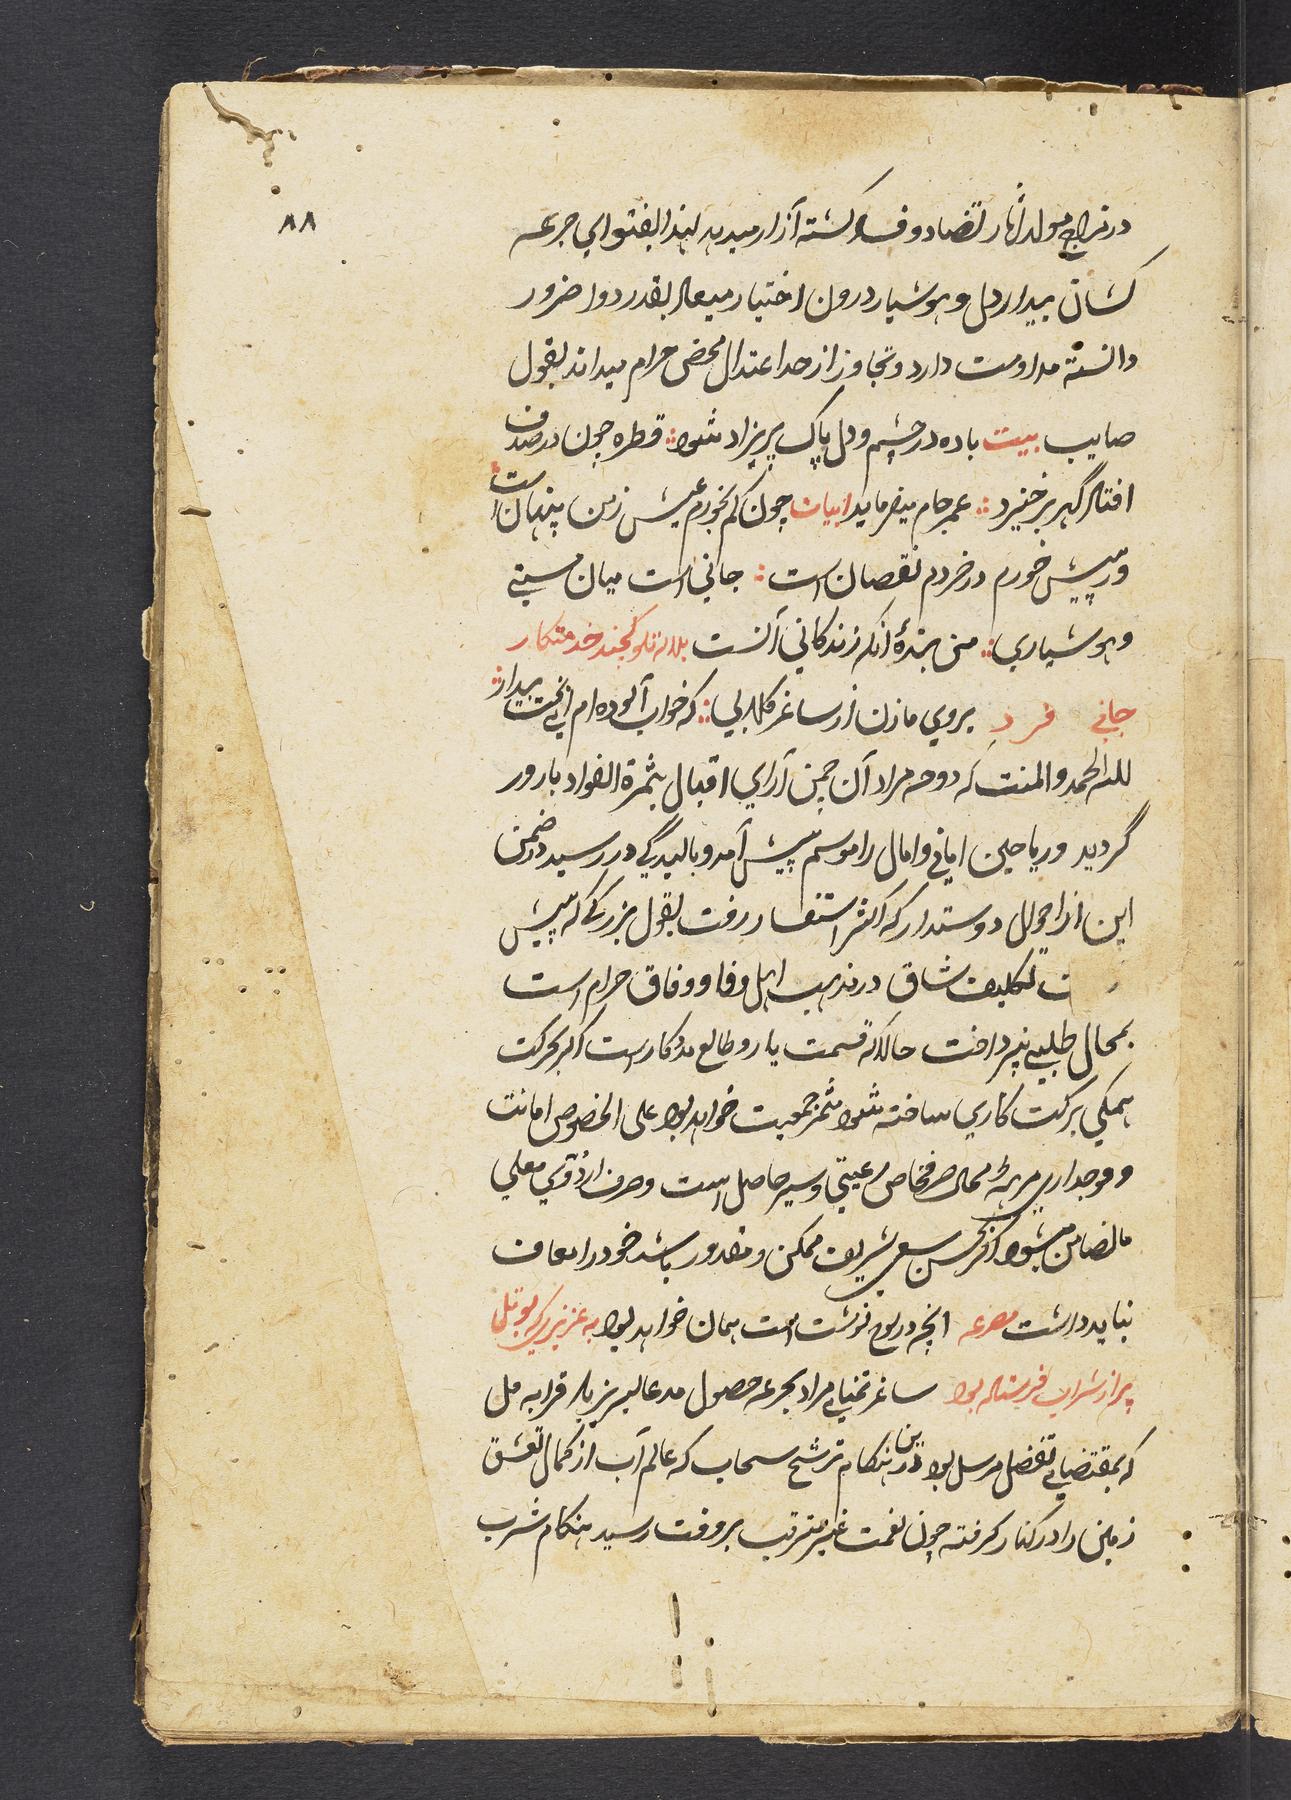 ۸۸
در مزاج مولد آثار تضاد و فساد کشته آزار میدهد لهذا بفتوای جرعه
کشان بیدار دل و هوشیار درون اختیار میعاد بقدر دوا ضرور
دانسته مداومت دارد و تجاوز از حد اعتدال محض حرام میداند بقول
صایب بیت باده در چشم و دل پاک پریزاد شود قطره چون در صدف
افتد گهر برخیزد عمر جام میفرماید ابیات چون کم نخورم عیش ز من پنهان است
ور بیش خورم در خردم نقصان است جانی است میان مستی
و هوشیاری من بندهٔ آنکه زندکانی آنست خدمتکار
جانی فرد بروی ما زن از ساغر کلابی که خواب آلوده ام ای بخت بیدار
لله الحمد والمنت که دوحه مراد آن چمن آرای اقبال بثمرة الفواد بارور
گردید و ریاحین امانی و امال را موسم پیش آمد و بالیدگی در رسید در ضمن
این از احوال دوستدار که اکثر استفسار رفت بقول بزرکی که پیش
ت تکلیف شاق در مذهب اهل وفا و وفاق حرام است
بمحال طلبی نپرداخت حالا که قسمت یار و طالع مددکار است اگر بحرکت
همکی برکت کاری ساخته شود مثمر جمعیت خواهد بود علی الخصوص امانت
و فوجداری محال رعیتی و سیر حاصل است و صرف اردوی معلی
مالضامن میشود اگر بحسن سعی شریف ممکن و مقدور باشد خود را معاف
نباید داشت مصرعه انچه در لوح نوشت است همان خواهد بود به عزیزی که بوتل
پر از شراب فرستاده بود ساغر تمنای مراد بجرعه حصول مدعا لبریز باد قرابه مل
که بمقتضای تفضل مرسل بود درین هنکام ترشح سحاب که عالم آب از کمال تعشق
زمین را در کنار کرفته چون نعمت غیر مترقب بر وقت رسید هنکام شرب